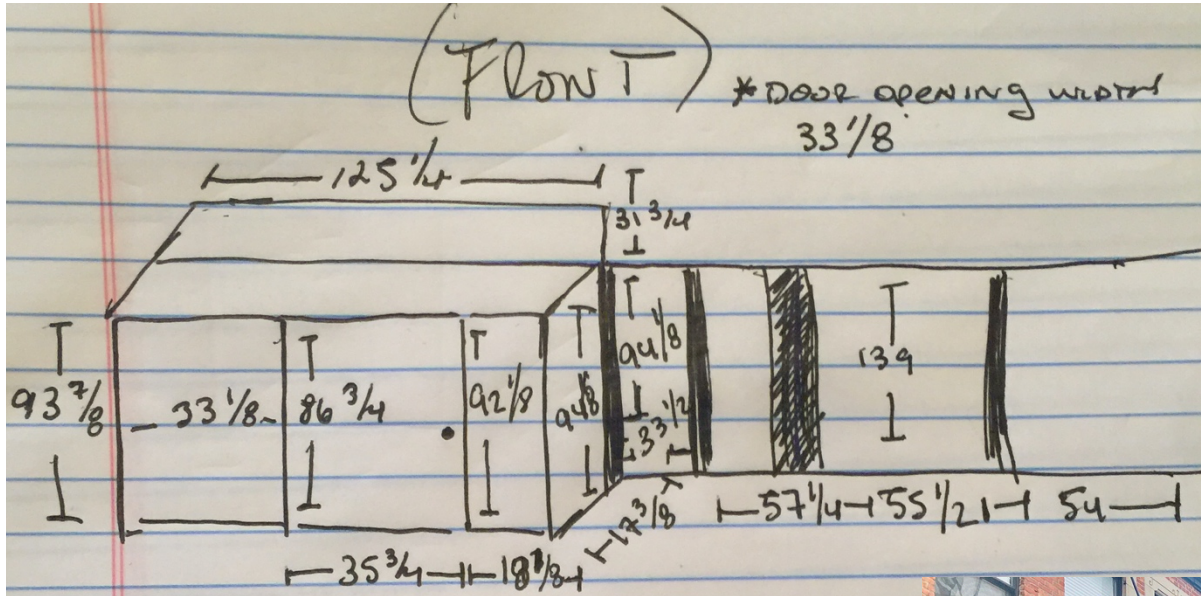 (FRONT)
*DOOR OPENING WIDTH
33 1/8
125 1/4
31 3/4
93 7/8
33 1/8
86 3/4
92 1/8
94 1/8
33 1/2
139
17 3/8
57 1/4
55 1/2
54
35 3/4